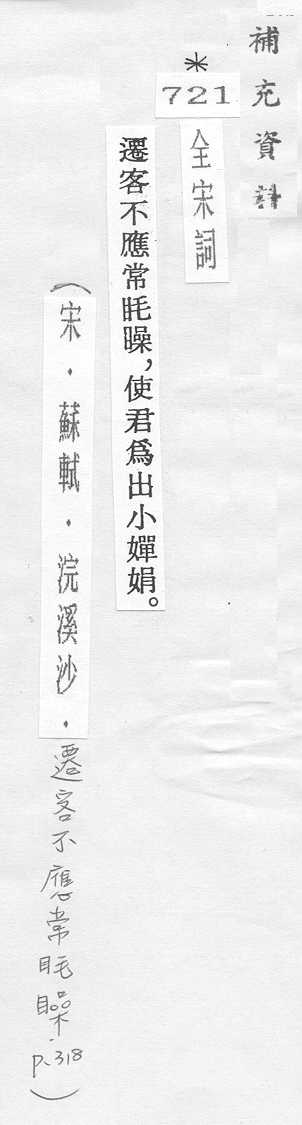 補充資料
*
721
全宋詞
遷客不應常眊矂，使君爲出小嬋娟。
（宋．蘇軾．浣溪沙．遷客不應常眊矂．P.318）